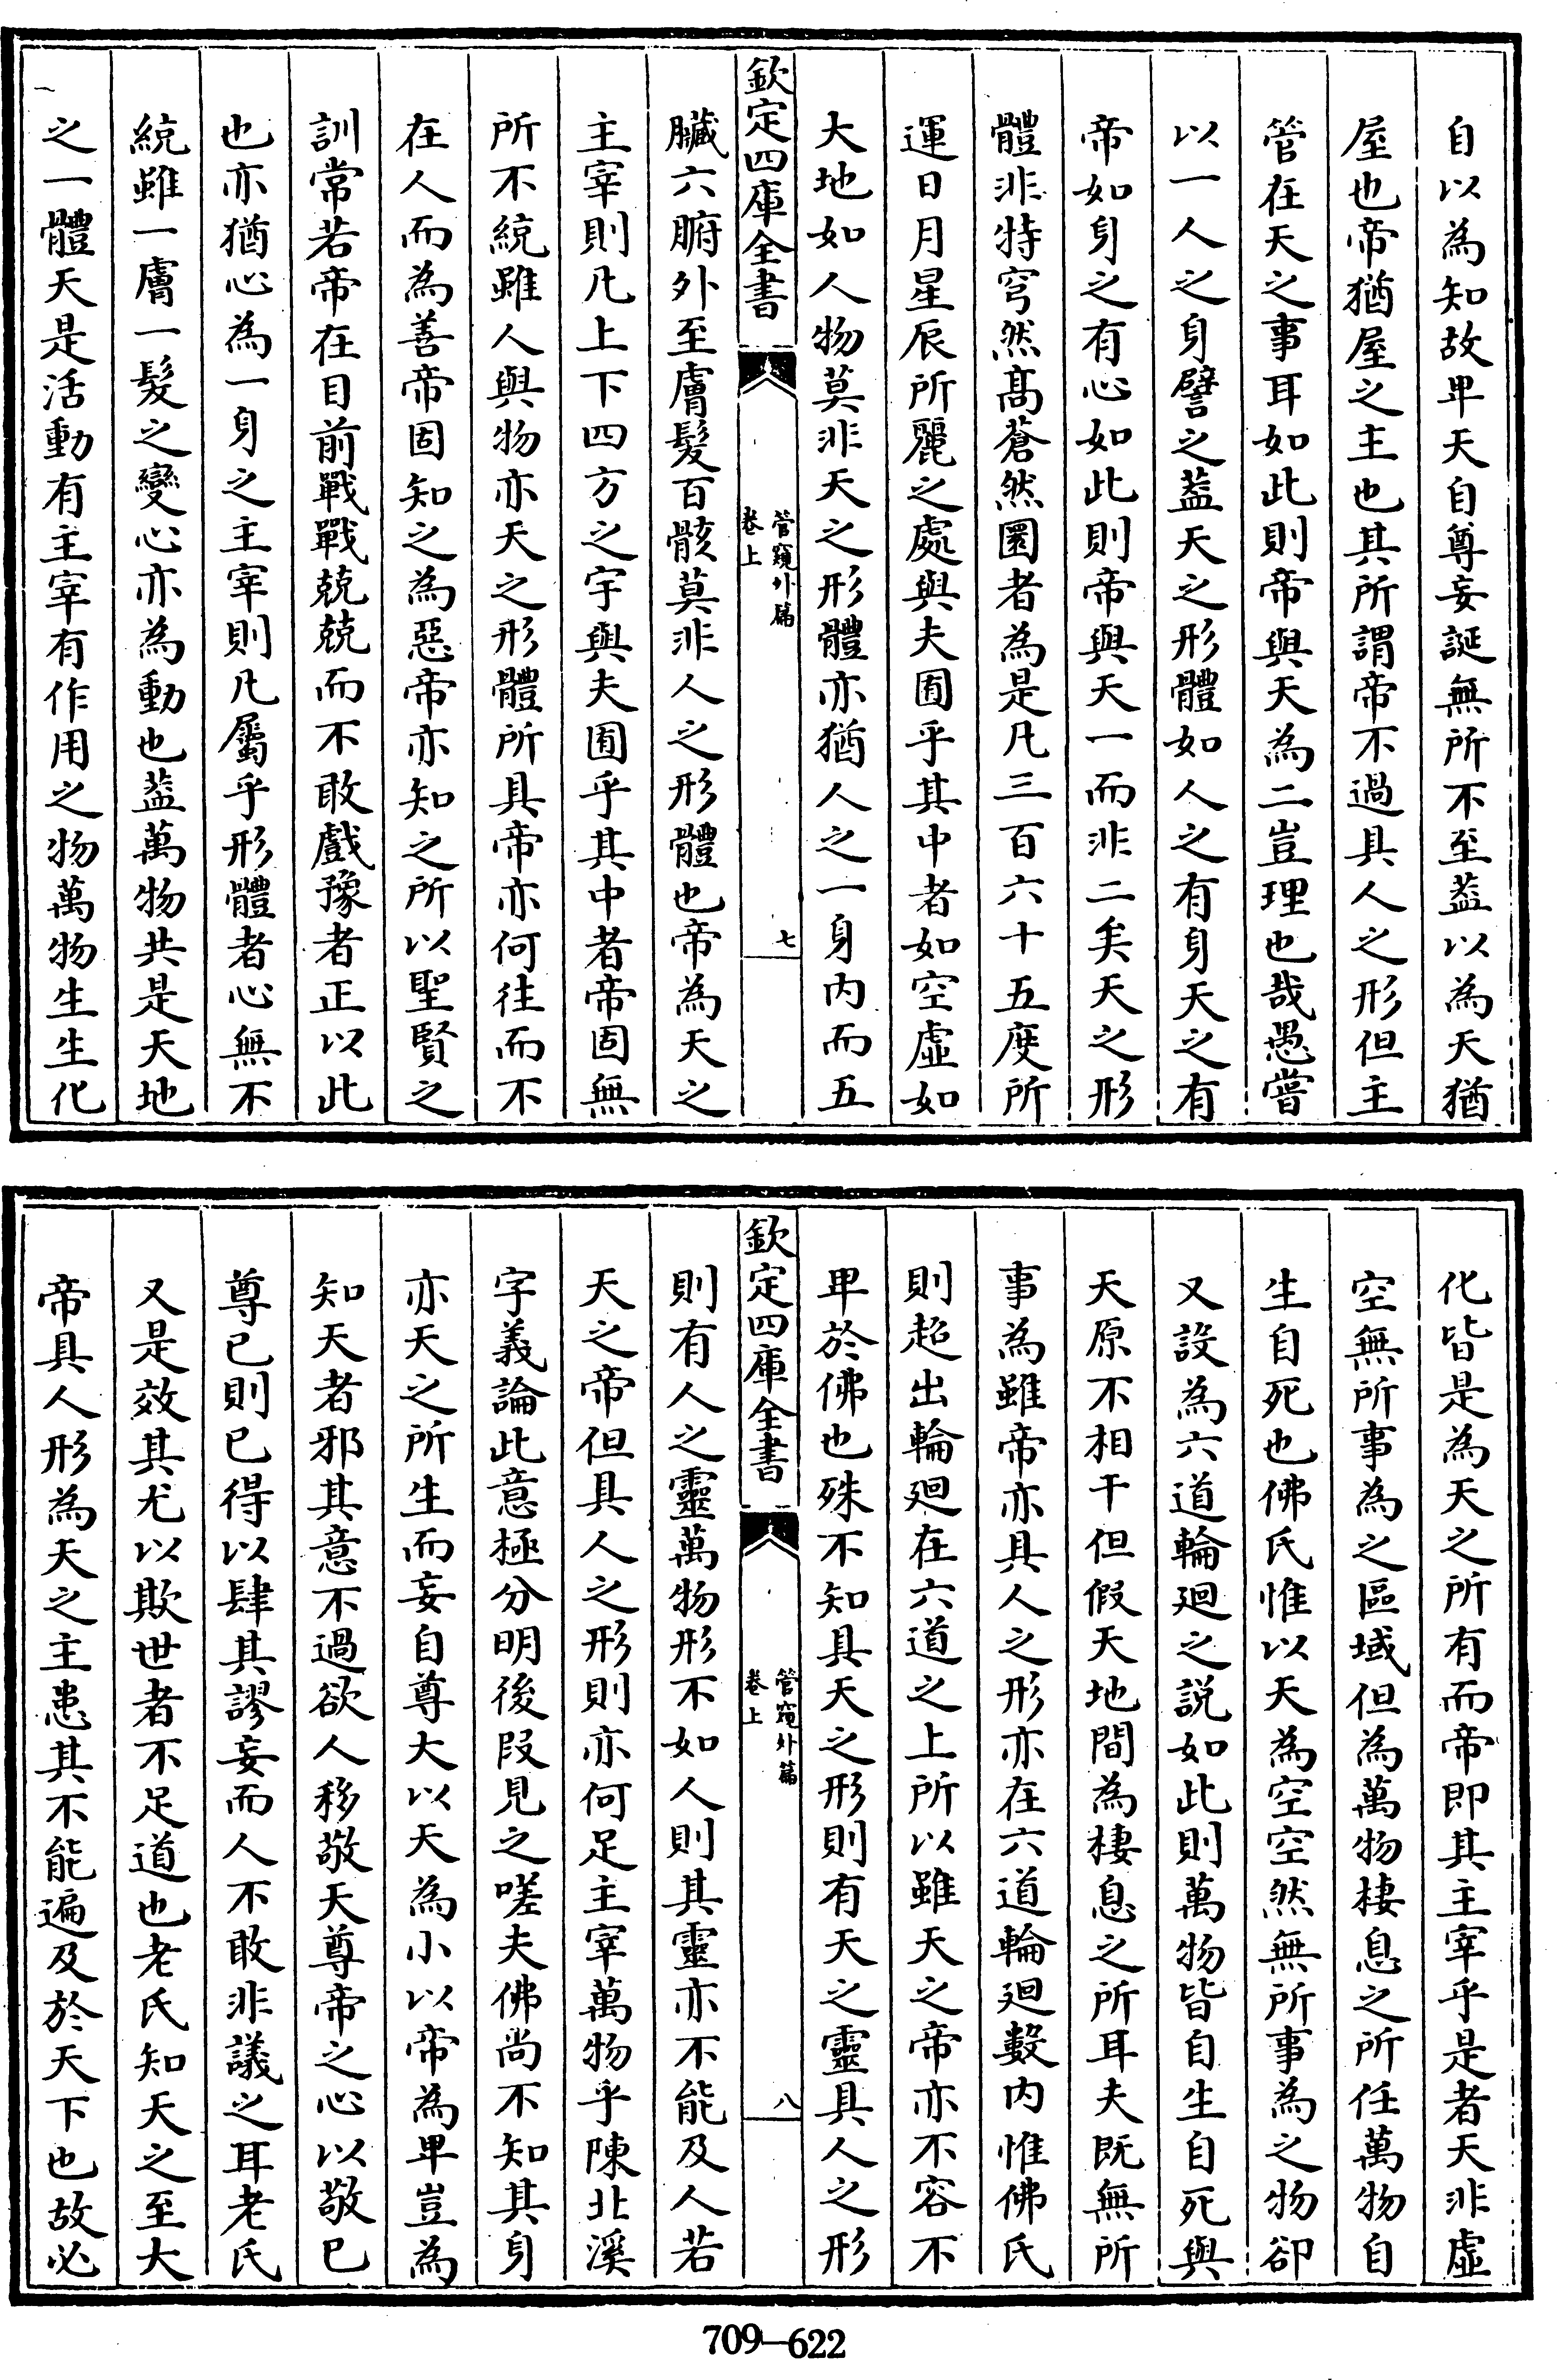 自以為知故卑天自尊妄誕無所不至葢以為天猶
屋也帝猶屋之主也其所謂帝不過具人之形但主
管在天之事耳如此則帝與天為二豈理也哉愚嘗
以一人之身譬之葢天之形體如人之有身天之有
帝如身之有心如此則帝與天一而非二矣天之形
體非特穹然髙蒼然圜者為是凡三百六十五度所
運日月星辰所麗之處與夫囿乎其中者如空虛如
大地如人物莫非天之形體亦猶人之一身内而五
欽定四庫全書
管窺外篇
卷上
七
臟六腑外至膚髮百骸莫非人之形體也帝為天之
主宰則凡上下四方之宇與夫囿乎其中者帝固無
所不統雖人與物亦天之形體所具帝亦何徃而不
在人而為善帝固知之為惡帝亦知之所以聖賢之
訓常若帝在目前戰戰兢兢而不敢戲豫者正以此
也亦猶心為一身之主宰則凡屬乎形體者心無不
統雖一膚一髮之變心亦為動也葢萬物共是天地
之一體天是活動有主宰有作用之物萬物生生化
化皆是為天之所有而帝即其主宰乎是者天非虛
空無所事為之區域但為萬物棲息之所任萬物自
生自死也佛氏惟以天為空空然無所事為之物卻
又設為六道輪廻之説如此則萬物皆自生自死與
天原不相干但假天地間為棲息之所耳夫既無所
事為雖帝亦具人之形亦在六道輪廻數内惟佛氏
則超出輪廻在六道之上所以雖天之帝亦不容不
卑於佛也殊不知具天之形則有天之靈具人之形
欽定四庫全書
管窺外篇
卷上
八
則有人之靈萬物形不如人則其靈亦不能及人若
天之帝但具人之形則亦何足主宰萬物乎陳北溪
字義論此意極分明後段見之嗟夫佛尚不知其身
亦天之所生而妄自尊大以天為小以帝為卑豈為
知天者邪其意不過欲人移敬天尊帝之心以敬已
尊已則已得以肆其謬妄而人不敢非議之耳老氏
又是效其尤以欺世者不足道也老氏知天之至大
帝具人形為天之主患其不能遍及於天下也故必
709—622